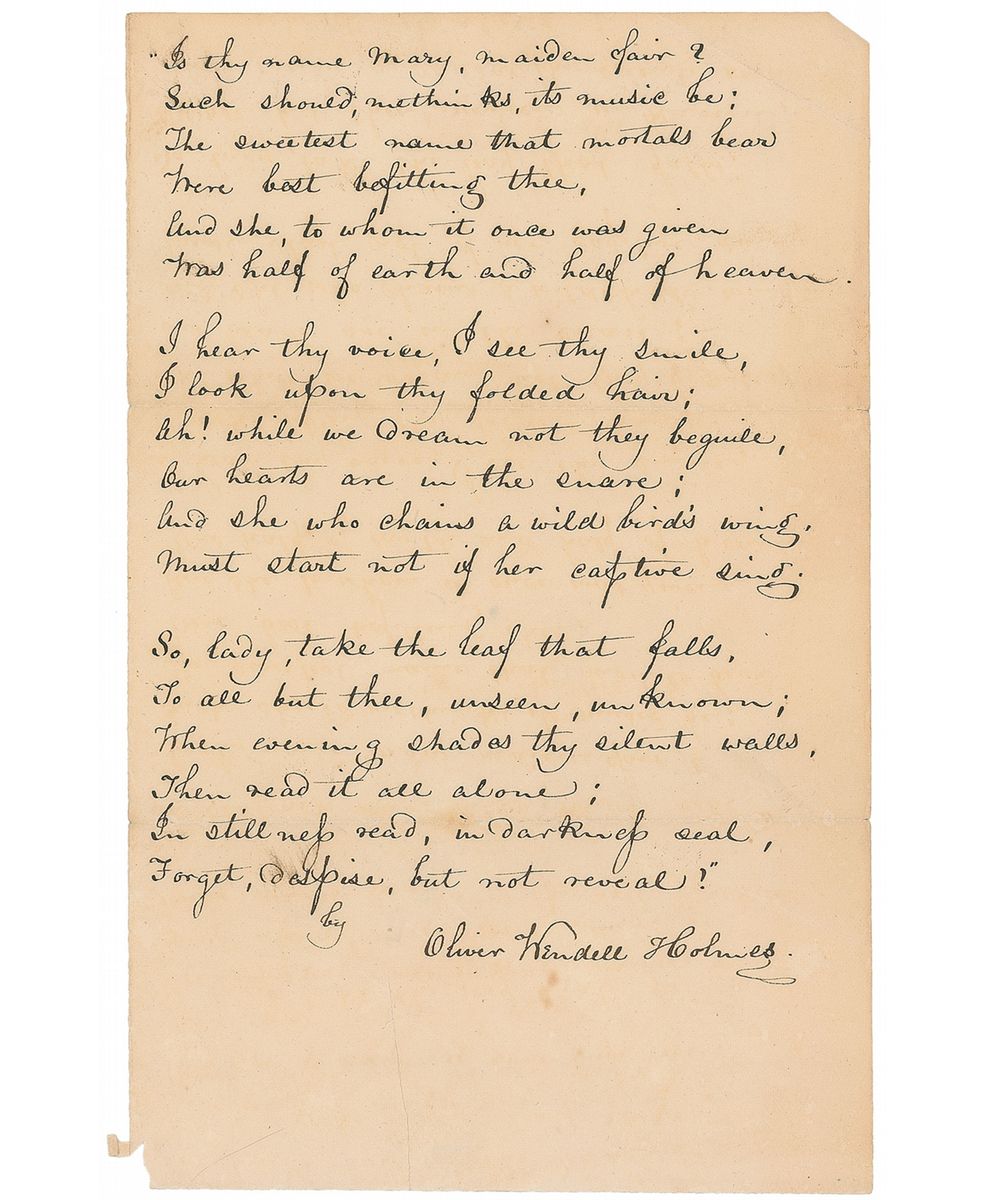 "Is thy name Mary, maiden fair?
Such should, methinks, its music be;
The sweetest name that mortals bear
Were best befitting thee,
And she, to whom it once was given
Was half of earth and half of heaven.
I hear thy voice, I see thy smile,
I look upon thy folded hair;
Ah! while we dream not they beguile,
Our hearts are in the snare;
And she who chains a wild bird's wing,
Must start not if her captive sing.
So, lady, take the leaf that falls,
To all but thee, unseen, unknown;
When evening shades thy silent walls,
Then read it all alone;
In stillneſs read, in darkneſs seal,
Forget, despise, but not reveal!"
by
Oliver Wendell Holmes.